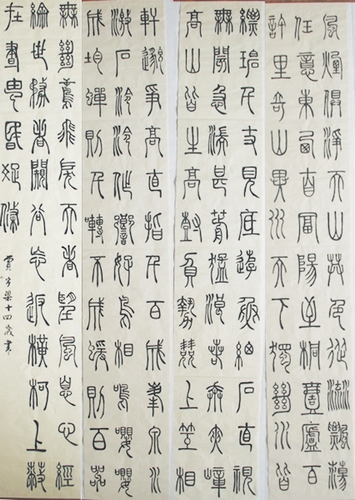 風煙俱淨天山共色從流飄蕩
任意東西自富陽至桐廬壹百
許里奇山異水天下獨絕水皆
縹碧千丈見底遊魚細石直視
無礙急湍甚箭猛浪若奔夾嶂
高山皆生寒樹負勢競上互相
軒邈爭高直指千百成峯泉水
激石泠泠作響好鳥相鳴嚶嚶
成韻蟬則千轉不窮猿則百叫
無絕鳶飛戾天者望峯息心經
綸世務者窺谷忘返橫柯上蔽
在晝猶昏疏條
十四歲書